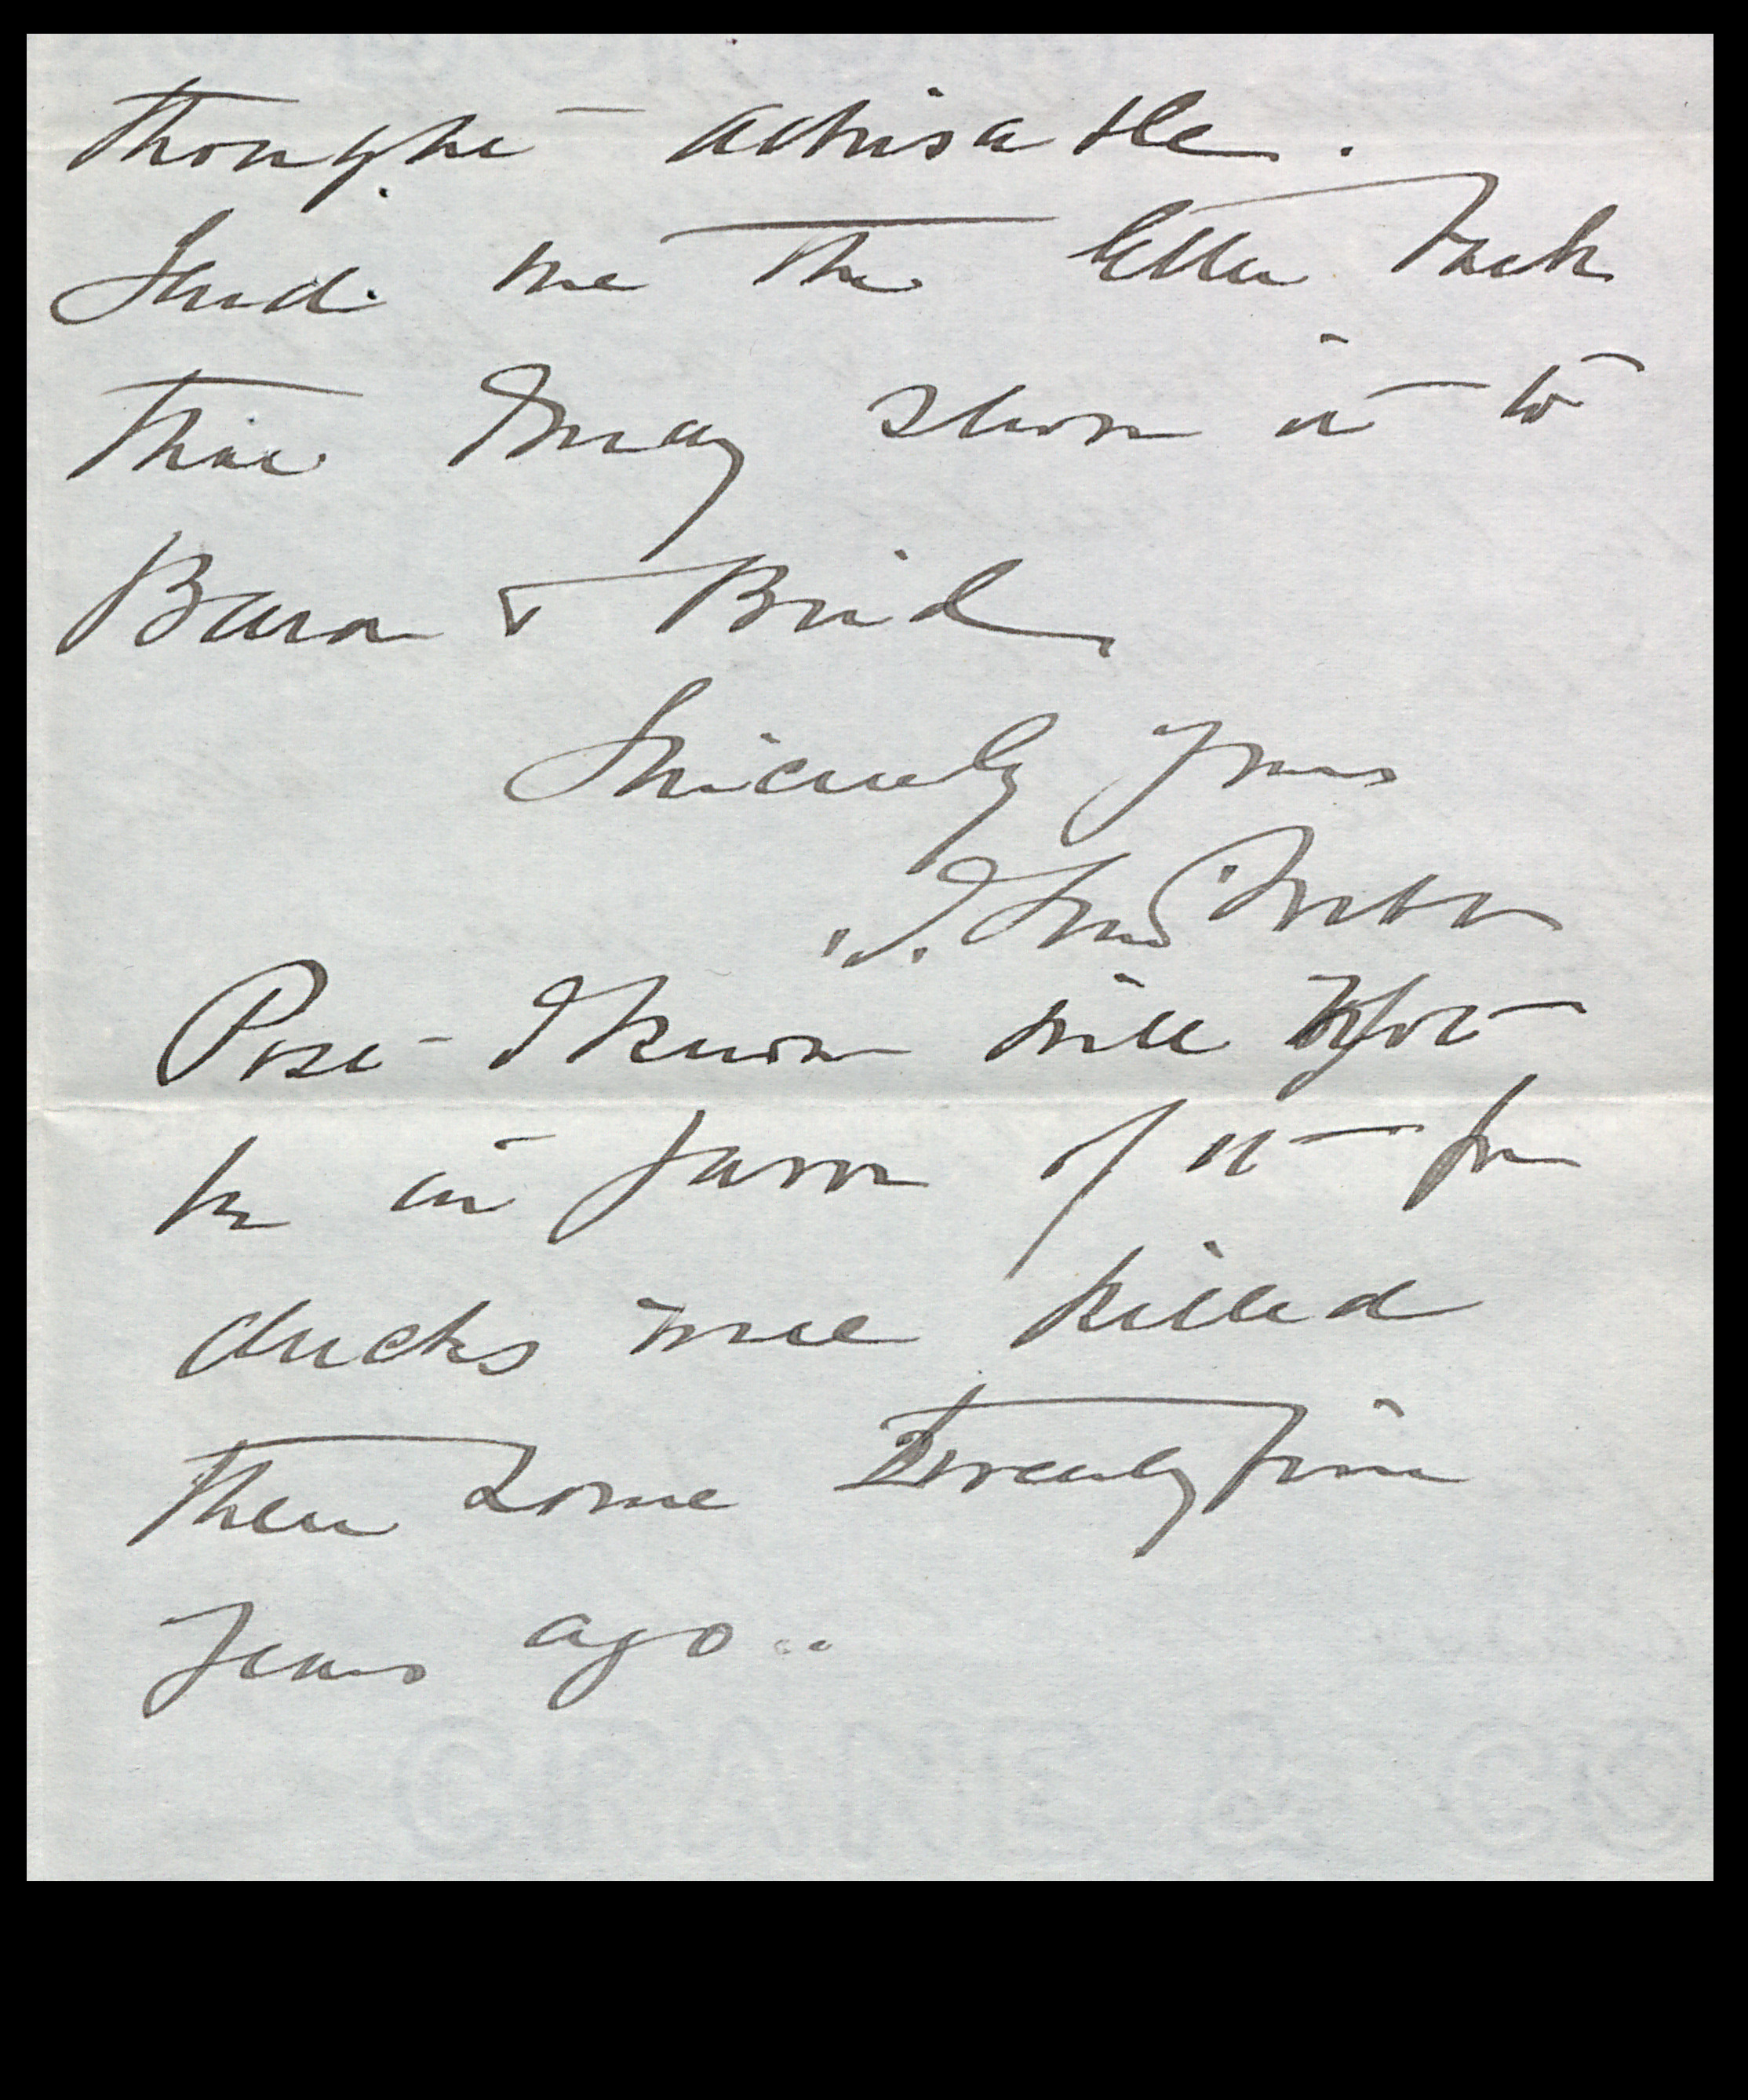 thought advisable.
Send me the letter back
that I may show it to
& Bird
Sincerely Yours
Post I know will not
be in favor of it for
ducks were killed
there some twenty five
years ago..
CRANE & CO